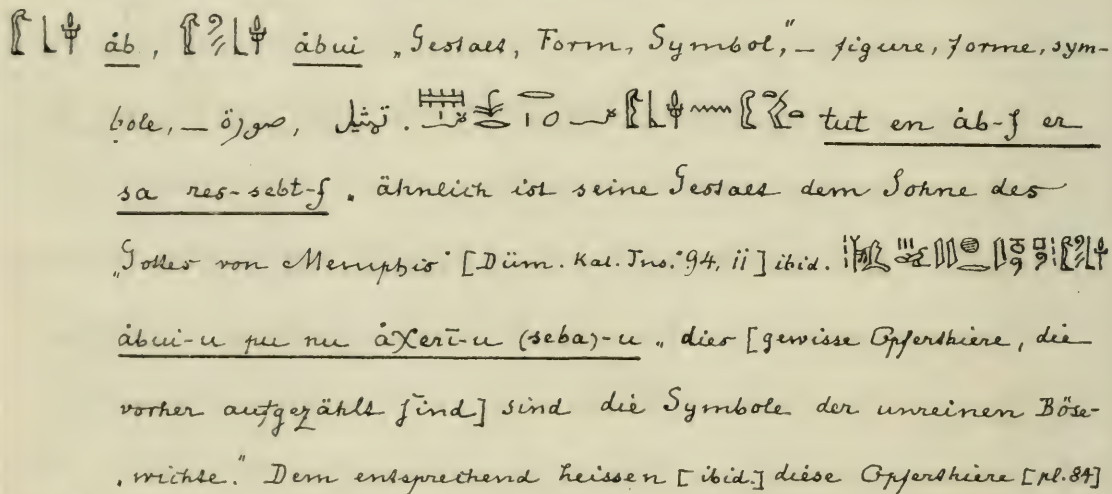 åb, åbui „Gestalt, Form, Symbol,"– figure, forme, sym-
bole, – صورة, تمثيل. tut en åb-f er
sa res-sebt-f „ähnlich ist seine Gestalt dem Sohne des
„Gottes von Memphis" [Düm. Kal. Ins. 94, ii] ibid.
åbui-u pu nu åχerī-u (seba)-u „dies [gewisse Opferthiere, die
vorher aufgezählt sind] sind die Symbole der unreinen Böse-
„wichte." Dem entsprechend heissen [ibid.] diese Opferthiere [pl. 84]